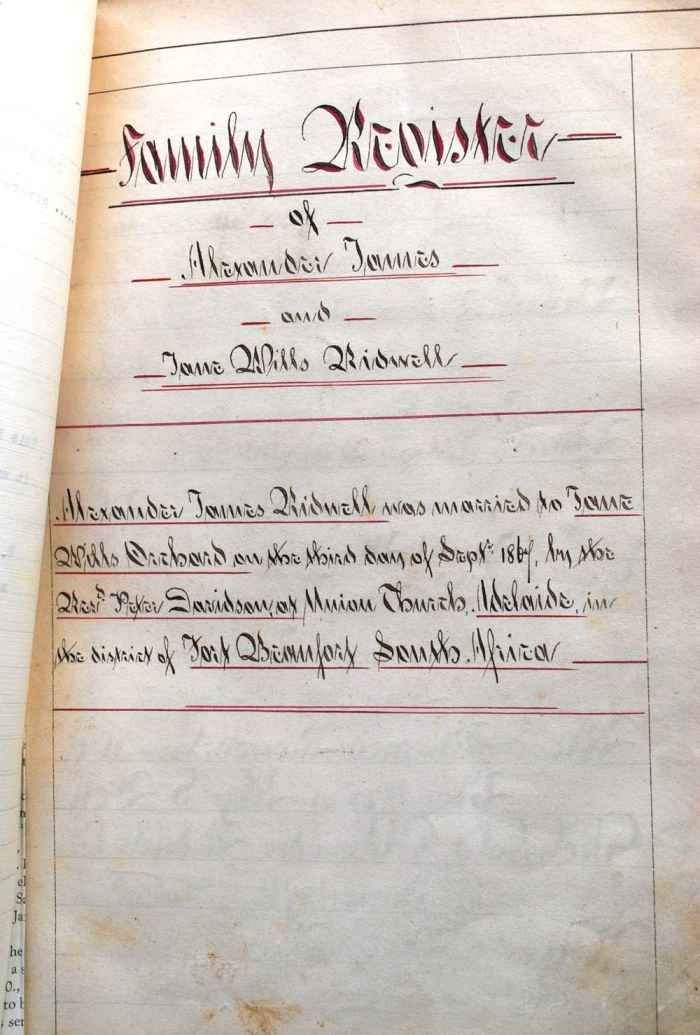 Family Register
of
Alexander James
and
Jane Wills Kidwell
Alexander James Kidwell was married to Jane
Wills Orchard on the third day of Sept^r. 1867, by the
Rev^d. Peter Davidson, at Union Church, Adelaide, in
the district of Fort Beaufort South Africa